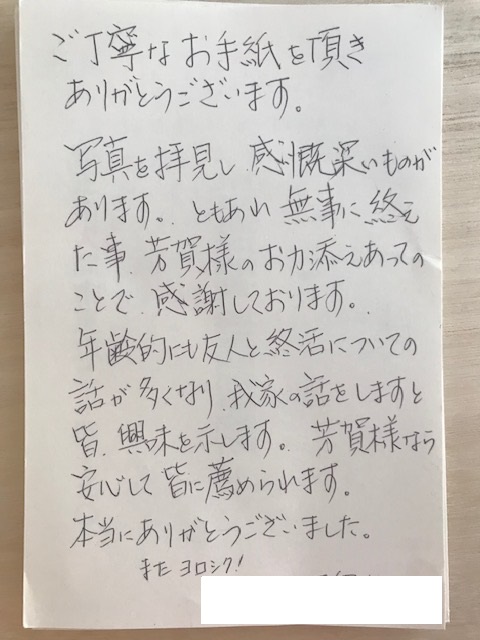 ご丁寧なお手紙を頂き
ありがとうございます。
写真を拝見し、感慨深いものが
あります。ともあれ無事に終え
た事、芳賀様のお力添えあっての
ことで、感謝しております。
年齢的にも友人と終活についての
話が多くなり、我家の話をしますと
皆、興味を示します。芳賀様なら
安心して皆に薦められます。
本当にありがとうございました。
また ヨロシク!